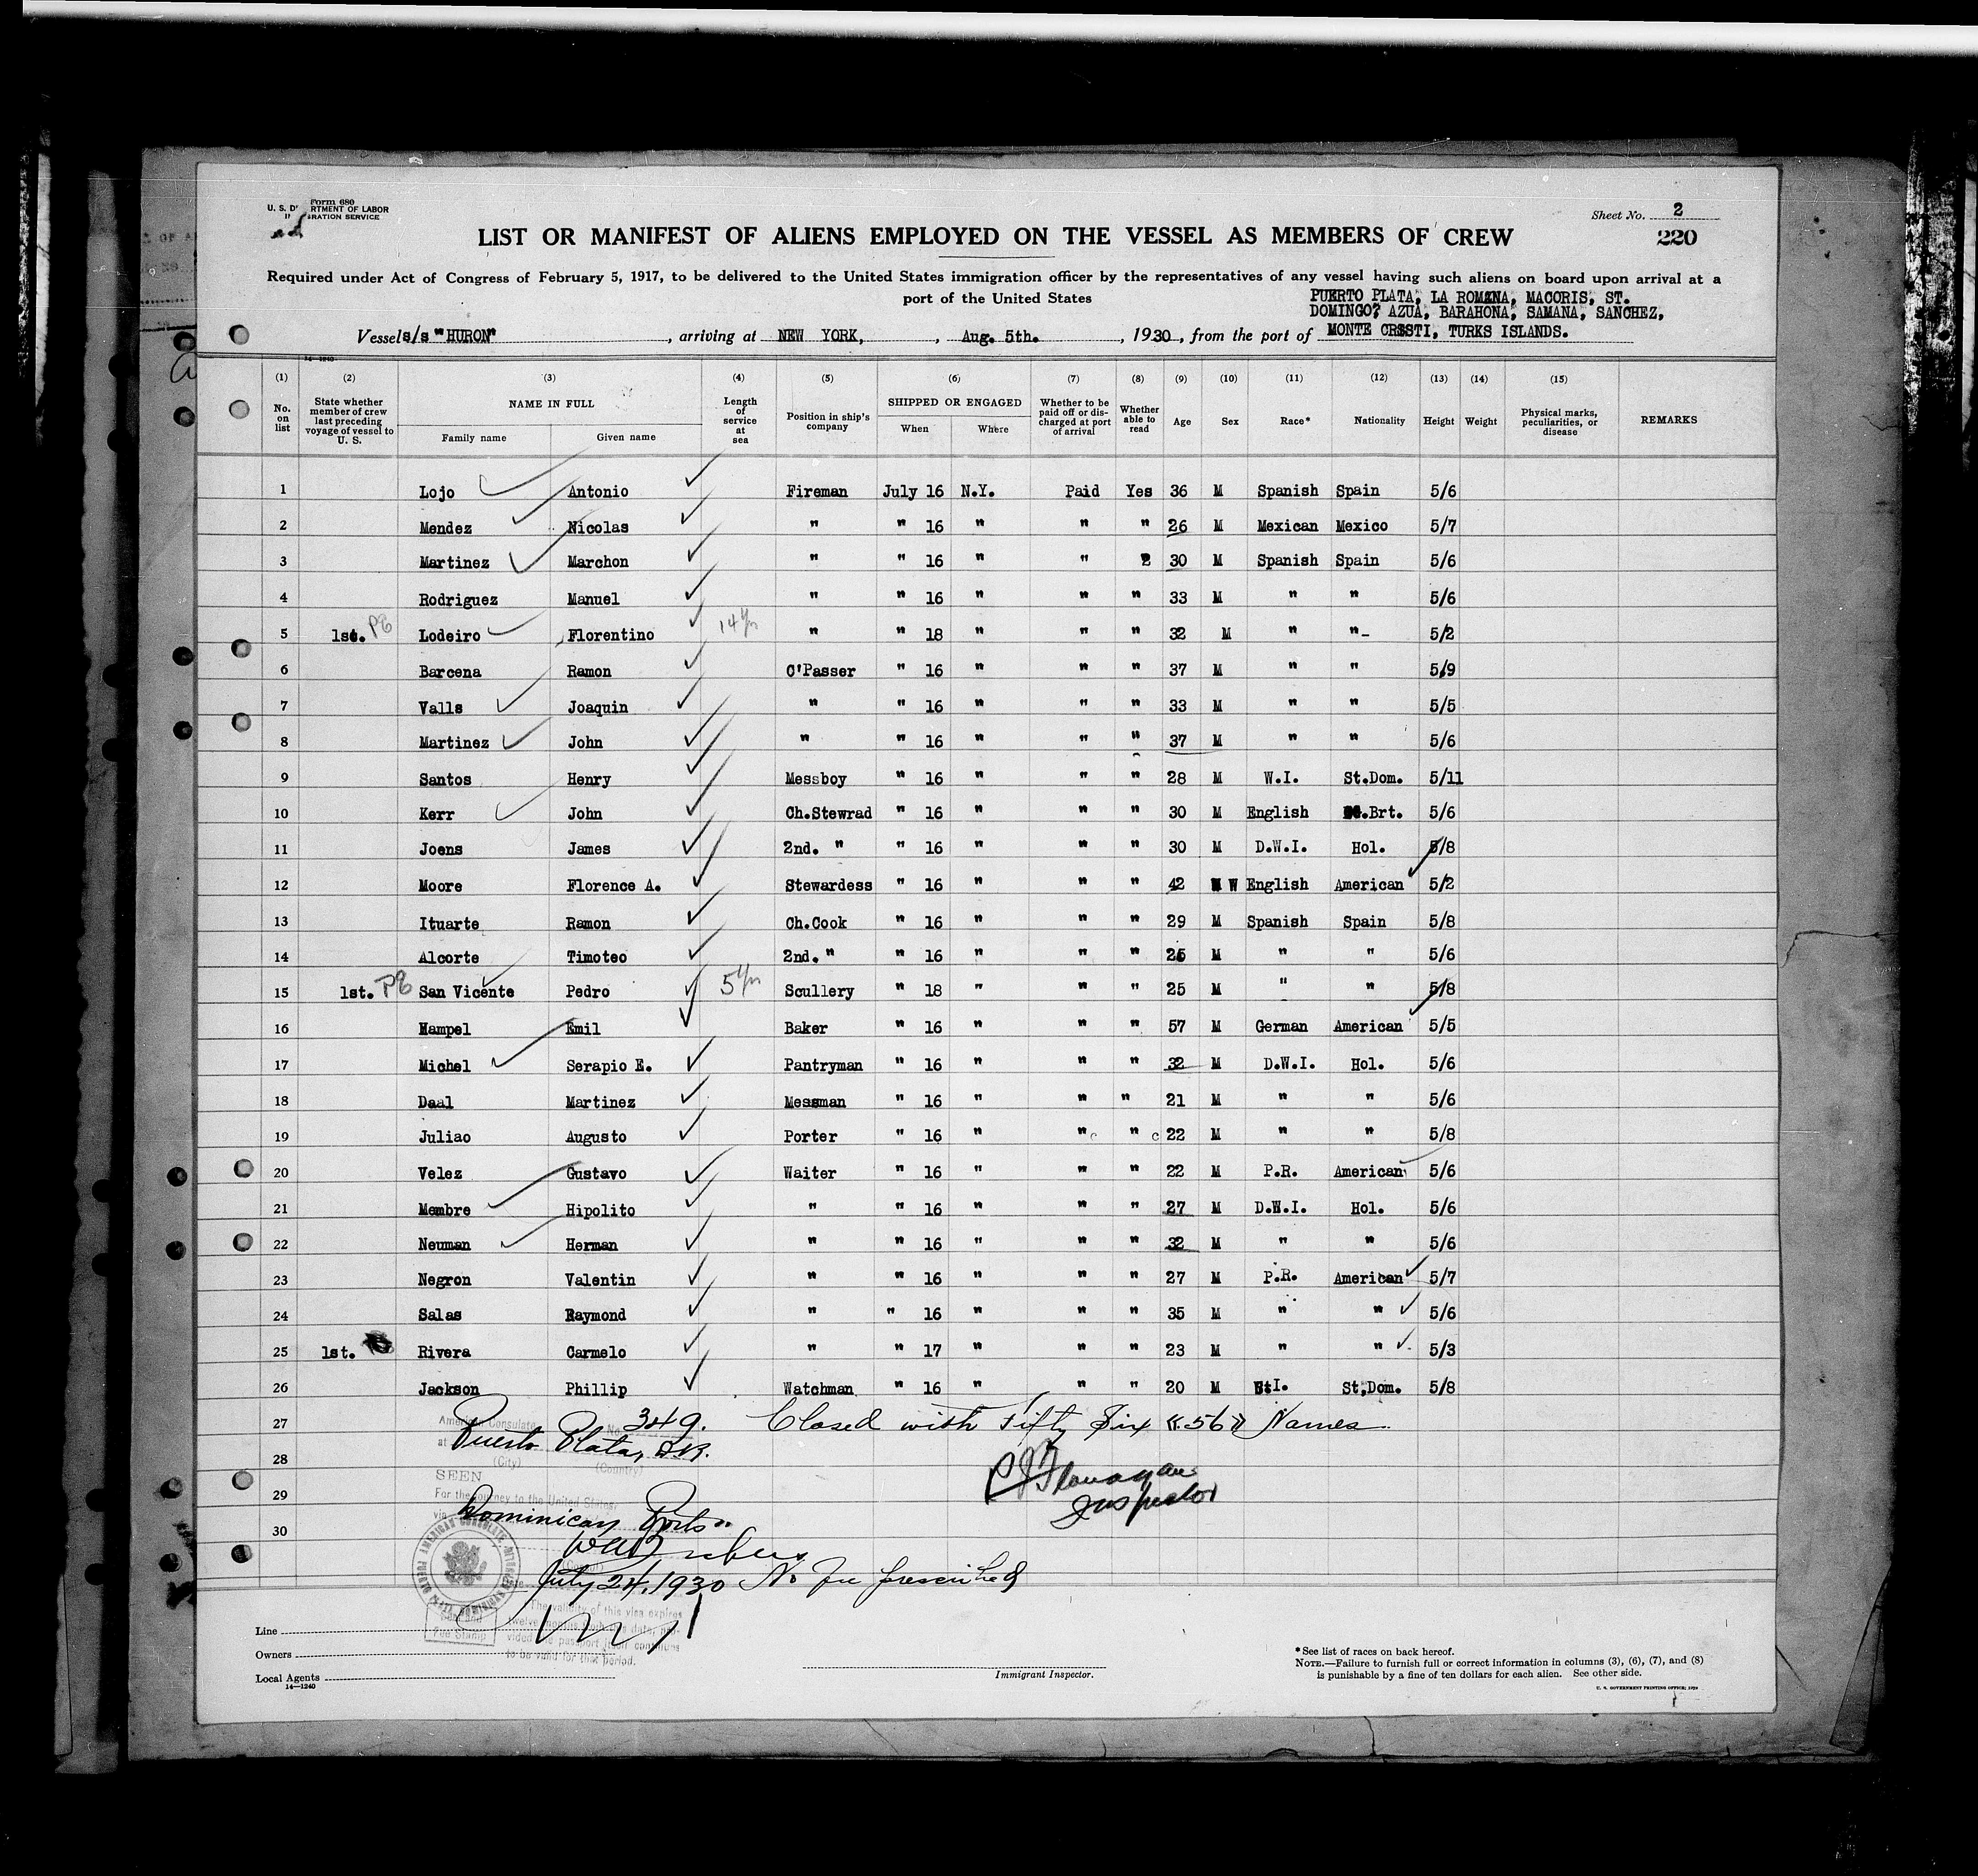 Form 680
U. S. DEPARTMENT OF LABOR
IMMIGRATION SERVICE
Sheet No. 2
220
LIST OR MANIFEST OF ALIENS EMPLOYED ON THE VESSEL AS MEMBERS OF CREW
Required under Act of Congress of February 5, 1917, to be delivered to the United States immigration officer by the representatives of any vessel having such aliens on board upon arrival at a
port of the United States
PUERTO PLATA, LA ROMANA, MACORIS, ST.
DOMINGO, AZUA, BARAHONA, SAMANA, SANCHEZ,
Vessel s/s "HURON", arriving at NEW YORK, Aug. 5th., 1930, from the port of MONTE CRISTI, TURKS ISLANDS.
14—1240
(1) (2) (3) (4) (5) (6) (7) (8) (9) (10) (11) (12) (13) (14) (15)
No. on list State whether member of crew last preceding voyage of vessel to U. S. NAME IN FULL Family name Given name Length of service at sea Position in ship's company SHIPPED OR ENGAGED When Where Whether to be paid off or discharged at port of arrival Whether able to read Age Sex Race* Nationality Height Weight Physical marks, peculiarities, or disease REMARKS
1 Lojo Antonio Fireman July 16 N.Y. Paid Yes 36 M Spanish Spain 5/6
2 Mendez Nicolas " " 16 " " " 26 M Mexican Mexico 5/7
3 Martinez Marchon " " 16 " " 30 M Spanish Spain 5/6
4 Rodriguez Manuel " " 16 " " " 33 M " " 5/6
5 1st. Lodeiro Florentino 14 yr " " 18 " " " 32 M " "- 5/2
6 Barcena Ramon C'Passer " 16 " " " 37 M " " 5/9
7 Valls Joaquin " " 16 " " " 33 M " " 5/5
8 Martinez John " " 16 " " " 37 M " " 5/6
9 Santos Henry Messboy " 16 " " " 28 M W.I. St.Dom. 5/11
10 Kerr John Ch.Stewrad " 16 " " " 30 M English .Brt. 5/6
11 Joens James 2nd. " " 16 " " " 30 M D.W.I. Hol. 5/8
12 Moore Florence A. Stewardess " 16 " " " 42 W English American 5/2
13 Ituarte Ramon Ch.Cook " 16 " " " 29 M Spanish Spain 5/8
14 Alcorte Timoteo 2nd. " " 16 " " " 26 M " " 5/6
15 1st. San Vicente Pedro 5 yr Scullery " 18 " " " 25 M " " 5/8
16 Hampel Emil Baker " 16 " " " 57 M German American 5/5
17 Michel Serapio E. Pantryman " 16 " " " 32 M D.W.I. Hol. 5/6
18 Daal Martinez Messman " 16 " " " 21 M " " 5/6
19 Juliao Augusto Porter " 16 " " " 22 M " " 5/8
20 Velez Gustavo Waiter " 16 " " " 22 M P.R. American 5/6
21 Membre Hipolito " " 16 " " " 27 M D.W.I. Hol. 5/6
22 Neuman Herman " " 16 " " " 32 M " " 5/6
23 Negron Valentin " " 16 " " " 27 M P.R. American 5/7
24 Salas Raymond " " 16 " " " 35 M " " 5/6
25 1st. Rivera Carmelo " " 17 " " " 23 M " " 5/3
26 Jackson Phillip Watchman " 16 " " " 20 M St,Dom. 5/8
27 American Consulate No. 349. Closed with Fifty Six "56" Names
at Puerto Plata, D.R.
28 (City) (Country)
SEEN
29 For the journey to the United States
Flanagan
Inspector
via Dominican Ports
30
(Consul)
July 24, 1930 No fee prescribed
The validity of this visa expires
twelve months from this date, pro-
vided the passport itself continues
to be valid for that period.
Fee Stamp
Line
Owners
Local Agents
14—1240
Immigrant Inspector.
*See list of races on back hereof.
NOTE.—Failure to furnish full or correct information in columns (3), (6), (7), and (8)
is punishable by a fine of ten dollars for each alien. See other side.